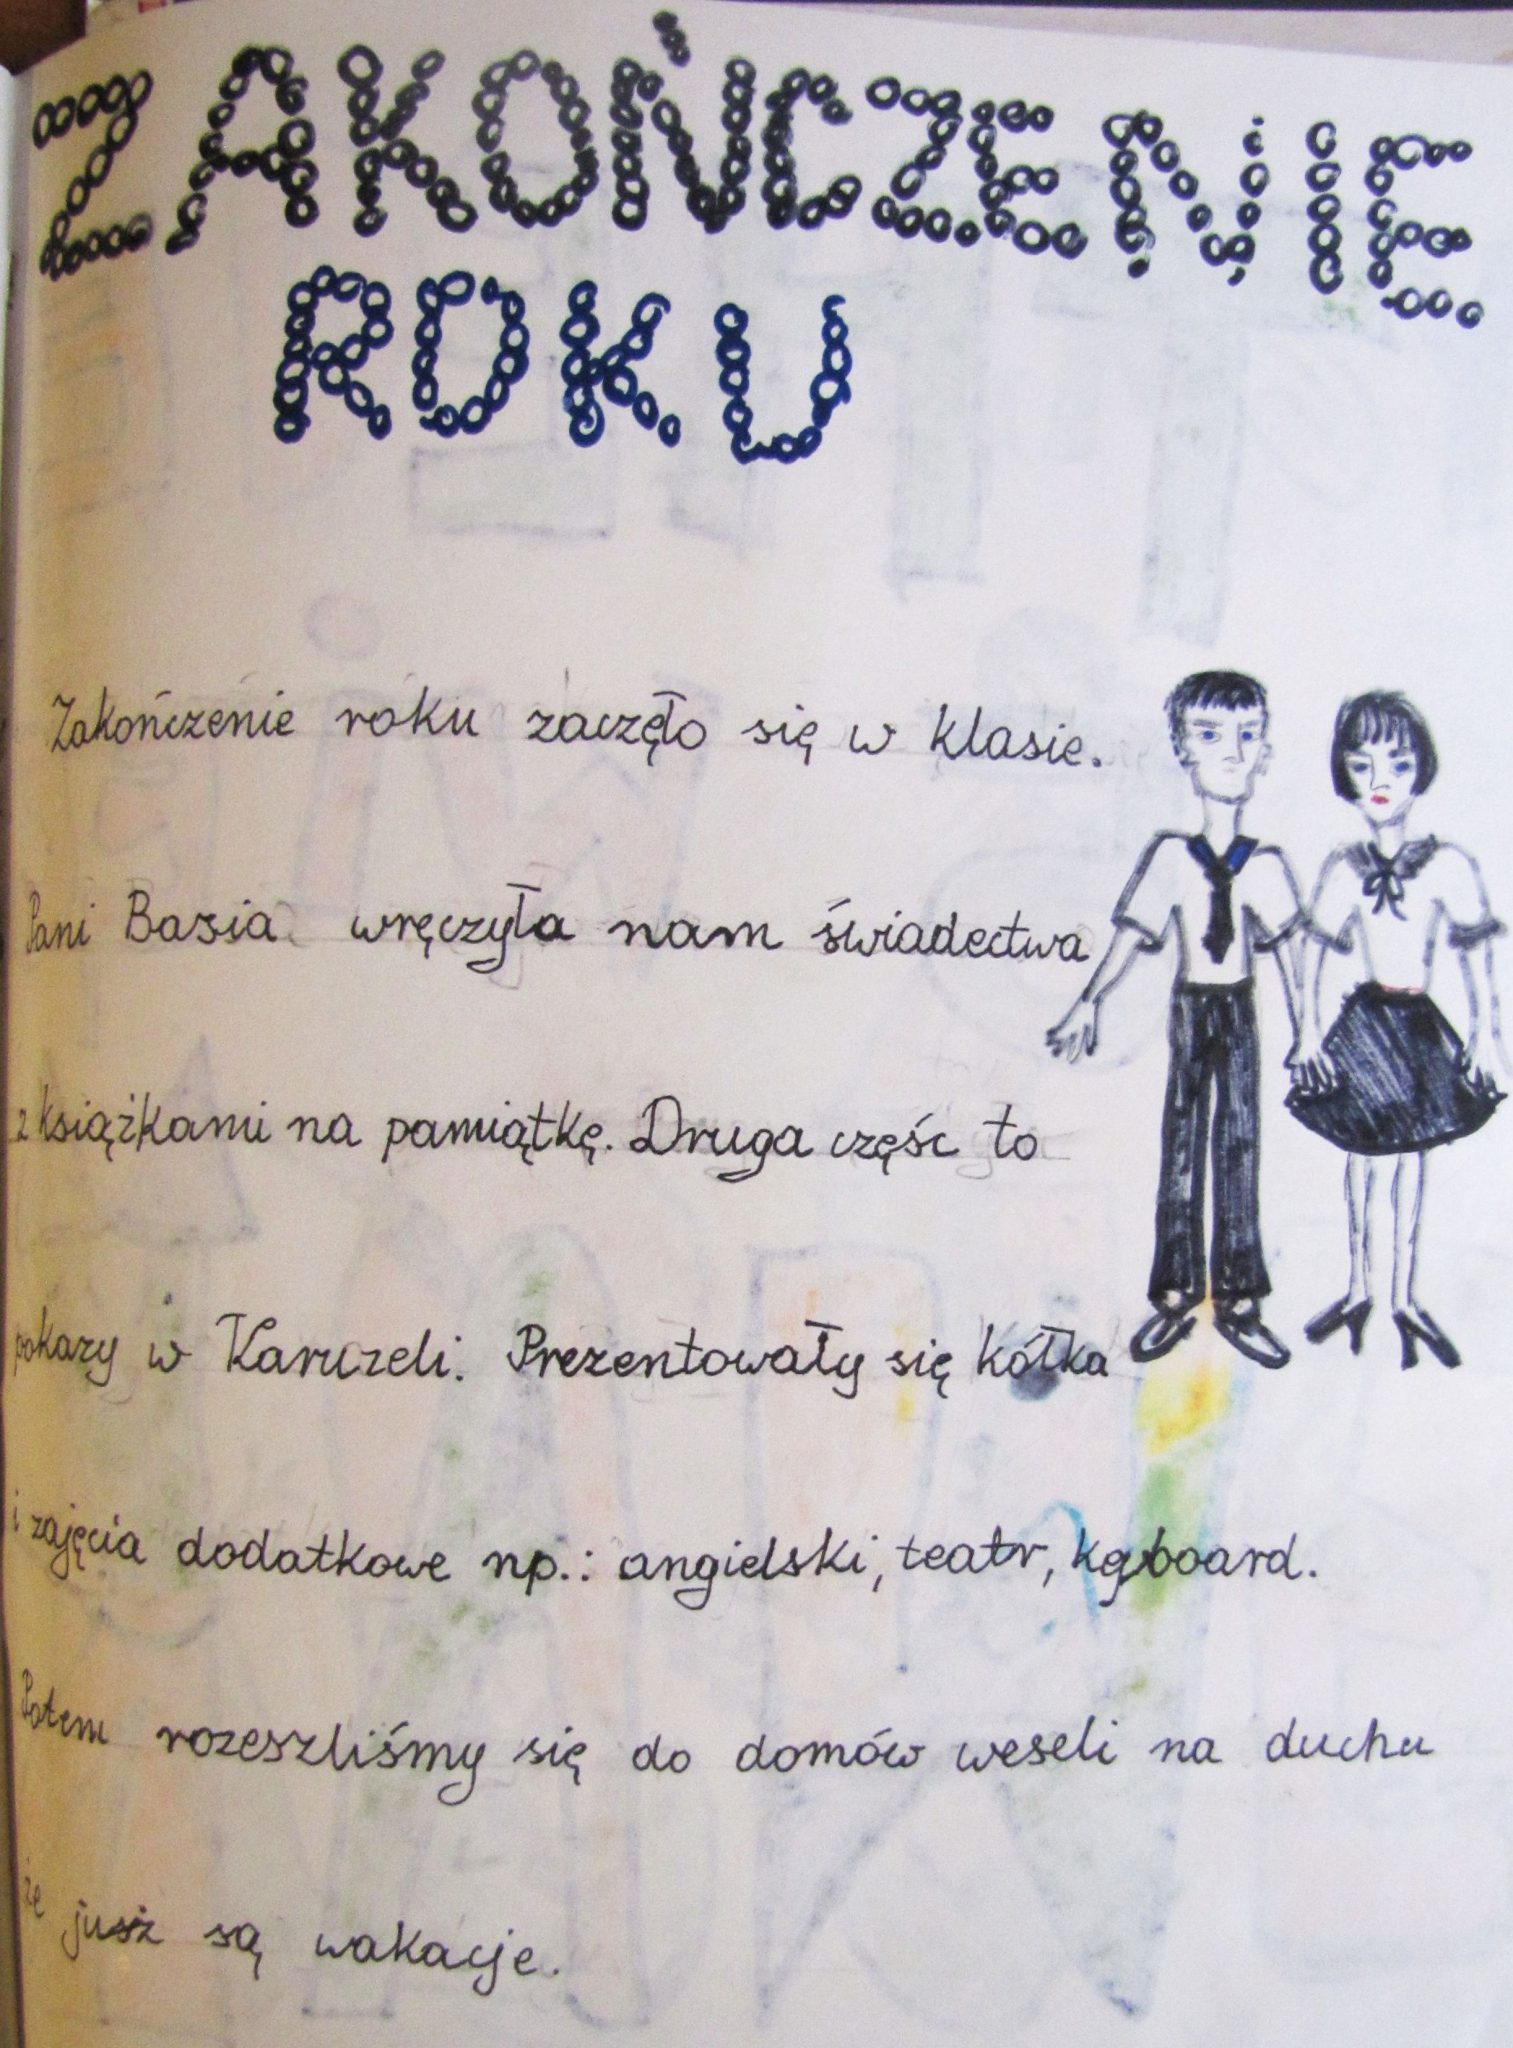 ZAKOŃCZENIE
ROKU
Zakończenie roku zaczęło się w klasie.
Pani Basia wręczyła nam świadectwa
z książkami na pamiątkę. Druga częśc to
pokazy w Karuzeli. Prezentowały się kółka
i zajęcia dodatkowe np.: angielski, teatr, kgboard.
Potem rozeszliśmy się do domów weseli na duchu
że jusz są wakacje.